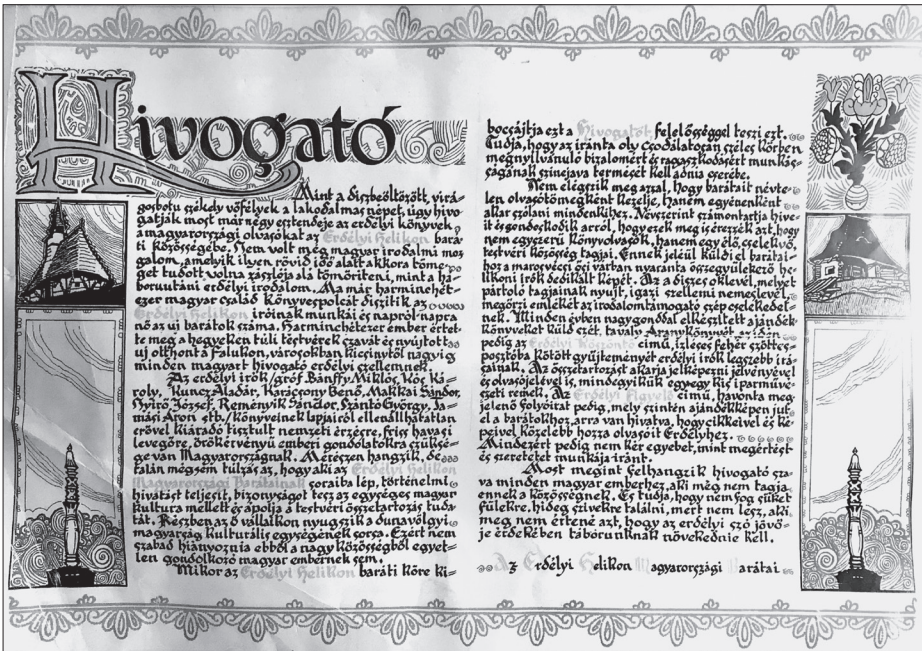 Hivogató
Mint a díszbeöltözött, virá-
gosbotu székely vőfélyek a lakodalmas népet, úgy hivo-
gatják most már négy esztendeje az erdélyi könyvek
a magyarországi olvasókat az Erdélyi Helikon bará-
ti közösségébe. Nem volt még magyar irodalmi moz-
galom, amelyik ilyen rövid idő alatt akkora töme-
get tudott volna zászlója alá tömöríteni, mint a há-
boruutáni erdélyi irodalom. Ma már harminchét-
ezer magyar család könyvespolcát díszítik az
Erdélyi Helikon íróinak munkái és napról-napra
nő az uj barátok száma. Harminchétezer ember értet-
te meg a hegyeken túli testvérek szavát és nyújtott
uj otthont a falukon, városokban kicsinytől nagyig
minden magyart hivogató erdélyi szellemnek.
Az erdélyi írók /gróf Bánffy Miklós, Kós Ká-
roly, Kuncz Aladár, Karácsony Benő, Makkai Sándor,
Nyirő József, Reményik Sándor, Szántó György, Ta-
mási Áron stb./ könyveinek lapjairól ellenállhatatlan
erővel kiáradó tisztult nemzeti érzésre, friss havasi
levegőre, örökérvényű emberi gondolatokra szüksé-
ge van Magyarországnak. Merészen hangzik, de
talán mégsem túlzás az, hogy aki az Erdélyi Helikon
Magyarországi Barátainak soraiba lép, történelmi
hivatást teljesít, bizonyságot tesz az egységes magyar
kultura mellett és ápolja a testvéri összetartozás tuda-
tát. Részben az ő vállalkon nyugszik a dunavölgyi
magyarság kulturális egységének sorsa. Ezért nem
szabad hiányoznia ebből a nagy közösségből egyet-
len gondolkozó magyar embernek sem.
Mikor az Erdélyi Helikon baráti köre ki-
bocsájtja ezt a Hivogatót felelősséggel teszi ezt.
Tudja, hogy az iránta oly csodálatosan széles körben
megnyilvánuló bizalomért és ragaszkodásért munkás-
ságának színejava termését kell adnia cserébe.
Nem elégszik meg azzal, hogy barátait névte-
len olvasótömegként kezelje, hanem egyénenként
akar szólani mindenkihez. Névszerint számontartja híve-
it és gondoskodik arról, hogy ezek meg is érezzék azt, hogy
nem egyszerű könyvolvasók, hanem egy élő, cselekvő,
testvéri közösség tagjai. Ennek jeléül küldi el barátai-
hoz a marosvécsi ősi várban nyaranta összegyülekező he-
likoni írók dedikált képét. Az a díszes oklevél, melyet
pártoló tagjainak nyujt, igazi szellemi nemeslevél,
megőrzi emlékét az irodalomtámogató szép cselekedet-
nek. Minden évben nagy gonddal elkészített ajándék-
könyveket küld szét, tavaly Aranykönyvét az idén
pedig az Erdélyi Köszöntő című, ízléses fehér szőttes-
posztóba kötött gyűjteményét erdélyi írók legszebb írá-
sainak. Az összetartozást akarja jelképezni jelvényével
és olvasójelével is, mindegyikük egyegy kis iparművé-
szeti remek. Az Erdélyi Figyelő című, havonta meg-
jelenő folyóirat pedig, mely szintén ajándékképen jut
el a barátokhoz, arra van hivatva, hogy cikkeivel és ké-
peivel közelebb hozza olvasóit Erdélyhez.
Mindezért pedig nem kér egyebet, mint megértést
és szeretetet munkája iránt.
Most megint felhangzik hivogató sza-
va minden magyar emberhez, aki még nem tagja
ennek a közösségnek. És tudja, hogy nem fog süket
fülekre, hideg szívekre találni, mert nem lesz, aki
meg nem értené azt, hogy az erdélyi szó jövő-
je érdekében táborunknak növekednie kell.
Az Erdélyi Helikon Magyarországi Barátai